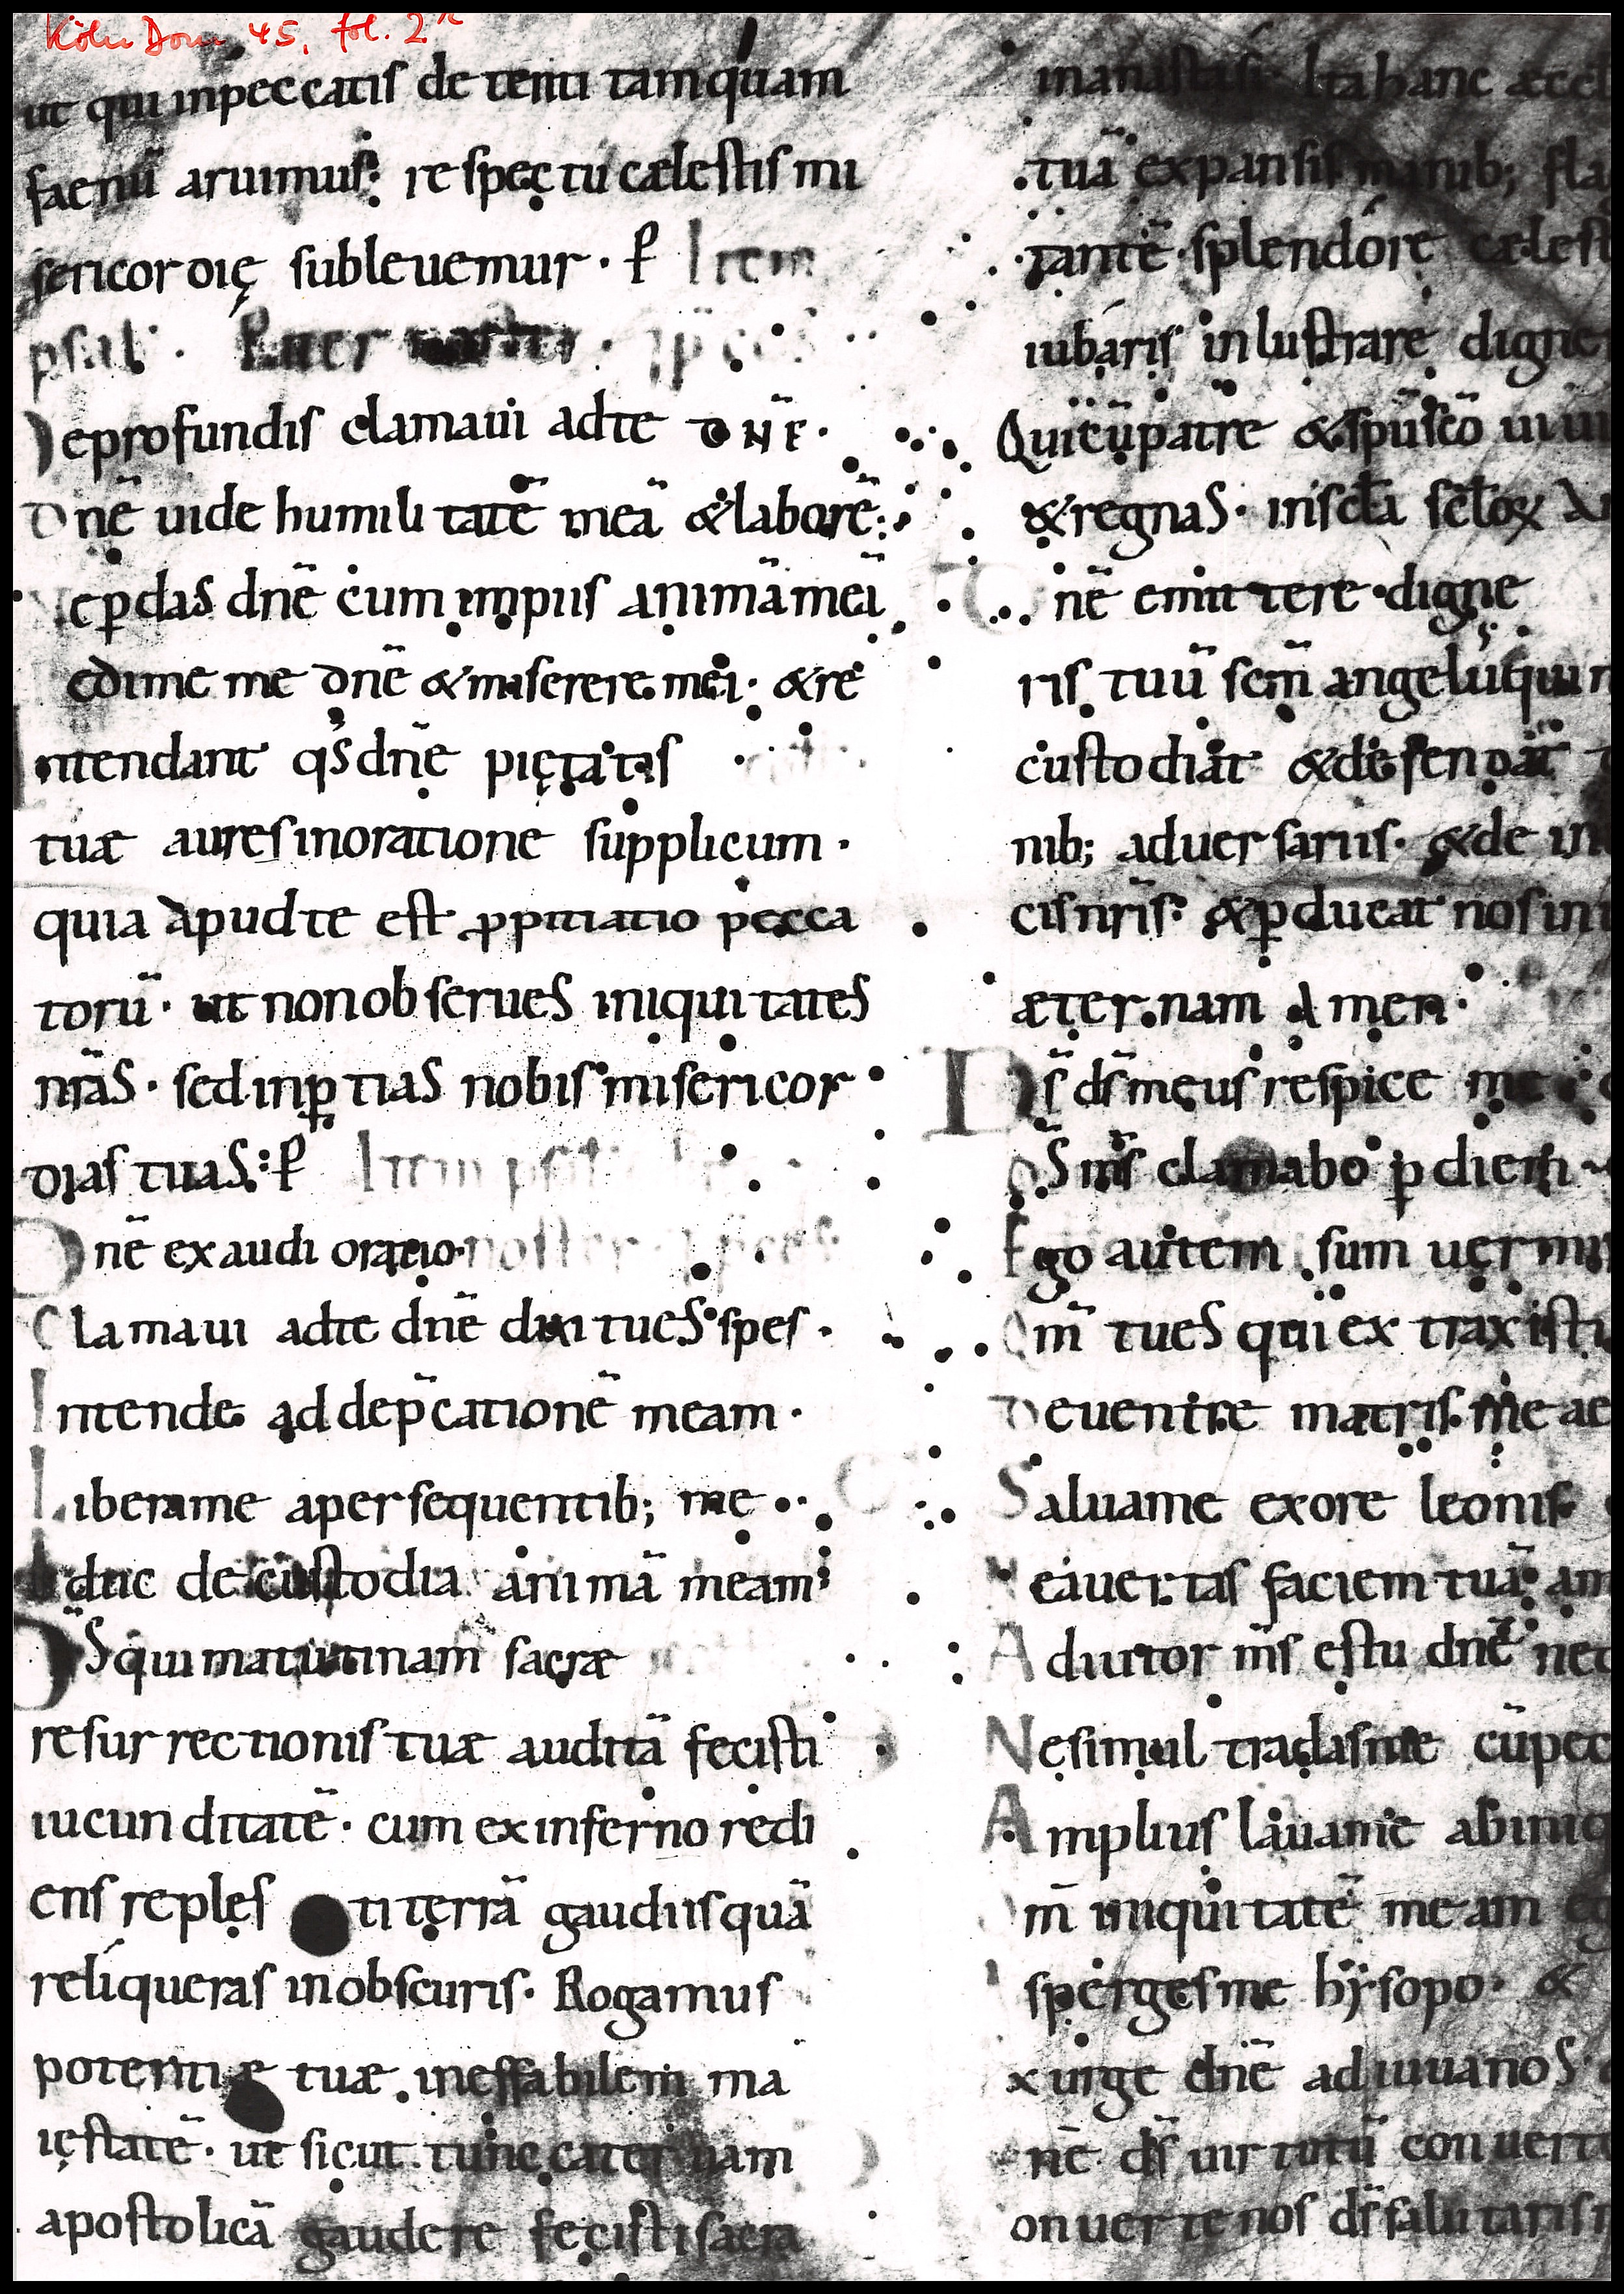 Köln Dom 45, fol. 2r
ut qui inpeccatis detenti tamquam
faenū aruimus: respectu cælestis mi
sericordię subleuemur · P Item
psal · Pater noster ·
Deprofundis clamaui adte DNE ·
Dnē uide humilitatē meā &laborē:
Nep̱das dnē cum impiis animāmeā
edime me dnē &miserere mei · &re
Intendant qs̄ dnē pięṭatis
tuæ aures inoratione supplicum ·
quia apudte est ꝓpitiatio pecca
torū · ut nonobserues iniquitates
nr̄as · sed inꝑtias nobis misericor
dias tuas: P Item psal
Dnē exaudi oratio· noster
Clamaui adte dnē dixi tues spes ·
Intende ad dep̄cationē meam ·
Liberame apersequentib; me ·
Educ de custodia animā meam
Ds̄ qui matutinam sacræ
resurrectionis tuæ auditā fecisti
iucunditatē · cum exinferno redi
ens reples ti terrā gaudiis quā
reliqueras inobscuris · Rogamus
potentiæ tuæ ineffabilem ma
iestatē · ut sicut tunc cateruam
apostolicā gaudere fecisti sacra
hanc
tuā expansis manib; fla
tantē splendore cælest
iubaris inlustrare digne
Quicū patre &spū sc̄o uiui
&regnas · inscl̄a scl̄oꝝ
Dnē emittere digne
ris tuū sc̄m angelū qui n
custodiat &defendat
nib; aduersariis · &de in
cis nr̄is: &ꝑducat nos in
æternam Amen ·
Ds̄ ds̄ meus respice me
Ds̄ ms̄ clamabo ꝑ diem
Ego autem sum uermis
Qm̄ tues qui extraxisti
Deuentre matris me ae
Saluame exore leonis
Neauertas faciem tuā am
Adiutor ms̄ estu dnē nec
Nesimul tradasme cūpec
Amplius lauame abiniq
m̄ iniquitatē meam eg
spergesme hysopo · &
xurge dnē adiuuanos
nē ds̄ uirtutū conuerte
onuertenos ds̄ salutaris n